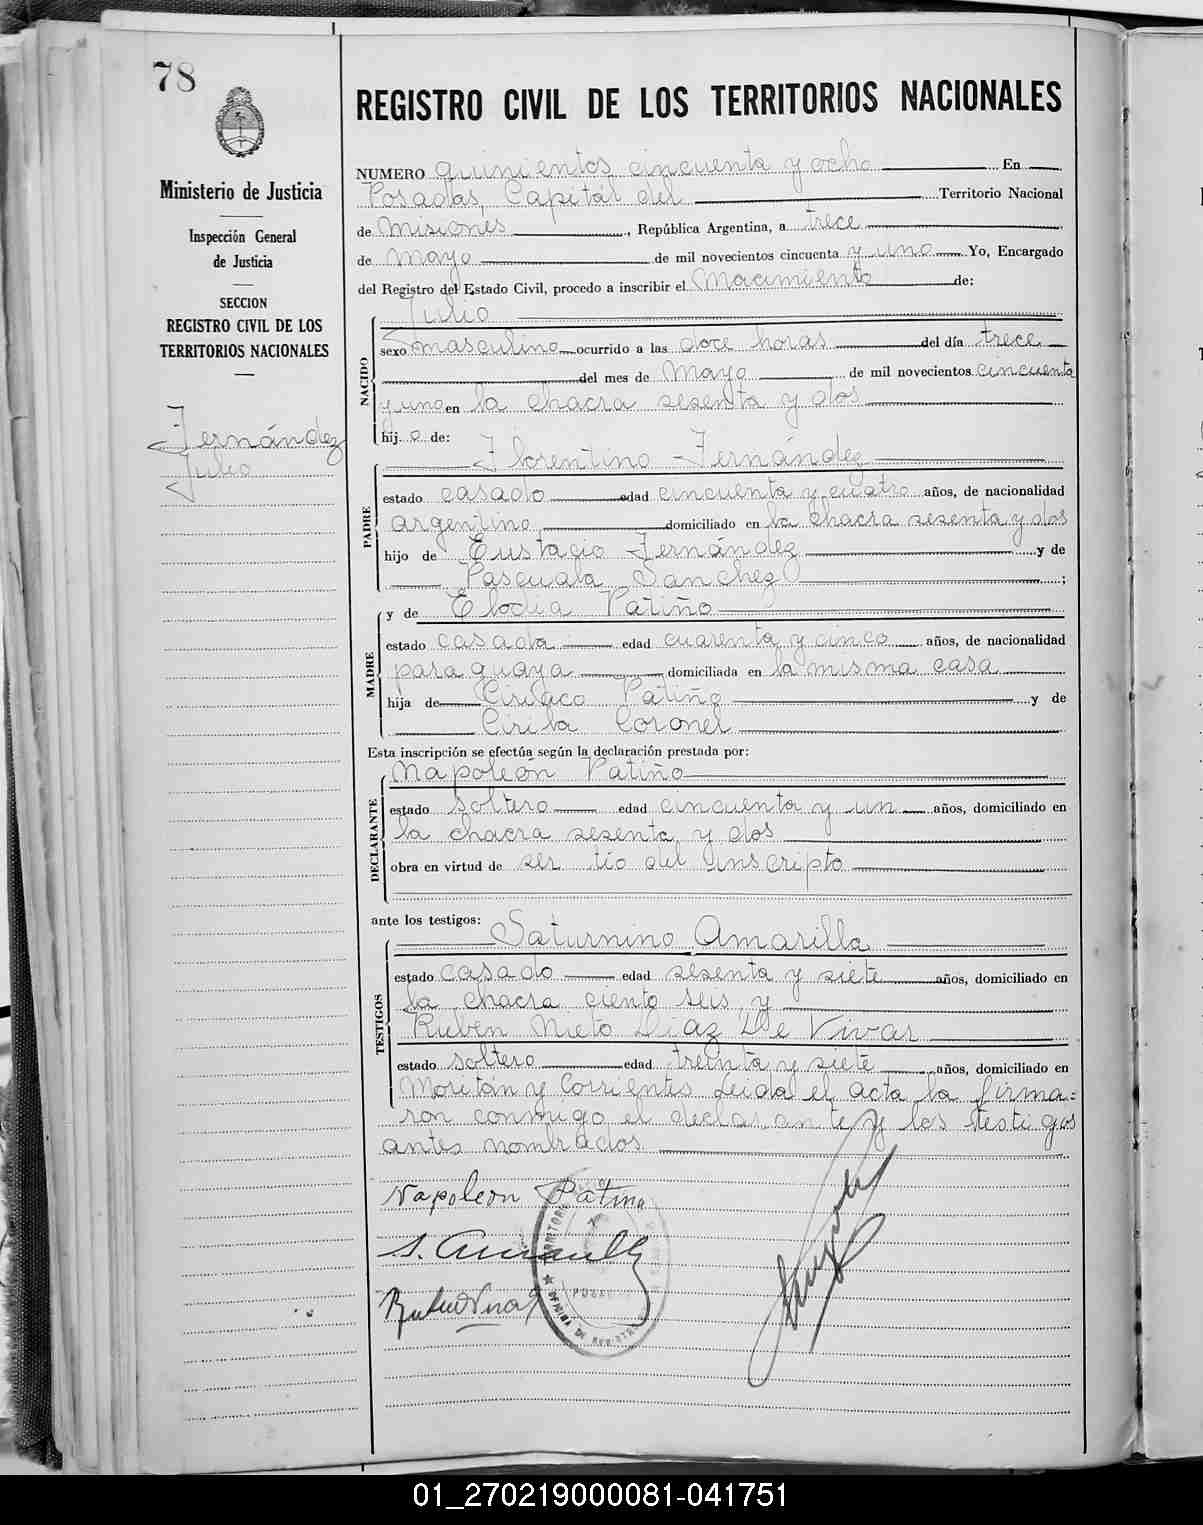 78
Ministerio de Justicia
Inspección General
de Justicia
SECCION
REGISTRO CIVIL DE LOS
TERRITORIOS NACIONALES
Fernández
Julio
REGISTRO CIVIL DE LOS TERRITORIOS NACIONALES
NUMERO quinientos cincuenta y ocho En
Posadas, Capital del Territorio Nacional
de Misiones, República Argentina, a trece
de Mayo de mil novecientos cincuenta y uno Yo, Encargado
del Registro del Estado Civil, procedo a inscribir el Nacimiento de:
NACIDO
Julio
sexo masculino ocurrido a las doce horas del día trece
del mes de Mayo de mil novecientos cincuenta
y uno en la chacra sesenta y dos
hijo de:
PADRE
Florentino Fernández
estado casado edad cincuenta y cuatro años, de nacionalidad
argentino domiciliado en la chacra sesenta y dos
hijo de Eustacio Fernández y de
Pascuala Sanchez;
MADRE
y de Elodia Patiño
estado casada edad cuarenta y cinco años, de nacionalidad
paraguaya domiciliada en la misma casa
hija de Ciriaco Patiño y de
Cirila Coronel
Esta inscripción se efectúa según la declaración prestada por:
DECLARANTE
Napoleón Patiño
estado soltero edad cincuenta y un años, domiciliado en
la chacra sesenta y dos
obra en virtud de ser tío del inscripto
ante los testigos:
TESTIGOS
Saturnino Amarilla
estado casado edad sesenta y siete años, domiciliado en
la chacra ciento seis y
Rubén Nieto Díaz De Vivar
estado soltero edad treinta y siete años, domiciliado en
Moritán y Corrientes Leida el acta la firma=
ron conmigo el declarante y los testigos
antes nombrados
Napoleon Patiño
S. Amarilla
01_270219000081-041751